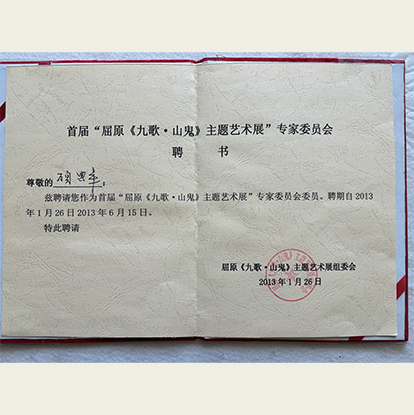 首届“屈原《九歌·山鬼》主题艺术展”专家委员会
聘 书
尊敬的 ：
兹聘请您作为首届“屈原《九歌·山鬼》主题艺术展”专家委员会委员。聘期自2013
年1月26日2013年6月15日。
特此聘请
屈原《九歌·山鬼》主题艺术展组委会
2013年1月26日